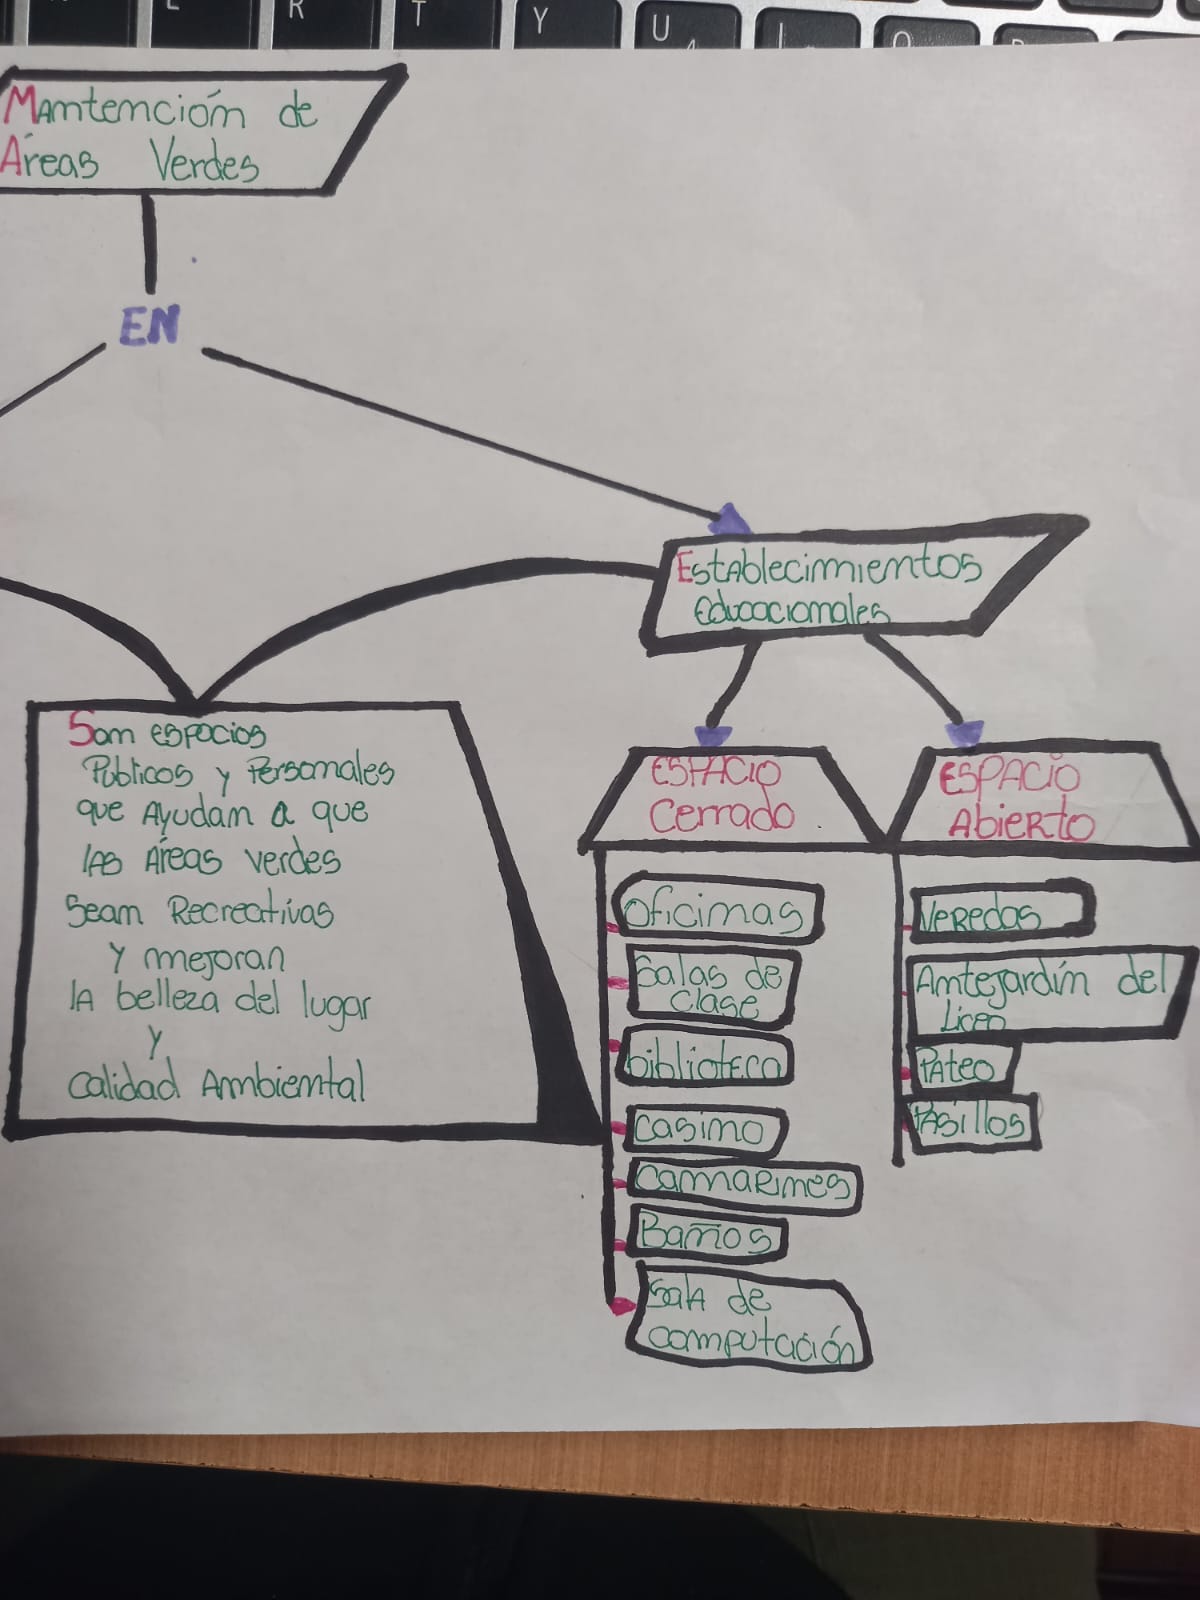 R T Y U
Mantención de
Áreas Verdes
EN
Establecimientos
Educacionales
Son espacios
Públicos y Personales
que Ayudan a que
las Áreas verdes
Sean Recreativas
y mejoran
la belleza del lugar
y
Calidad Ambiental
ESPACIO
Cerrado
Oficinas
Salas de
Clase
biblioteca
Casino
Camarines
Baños
Sala de
Computación
ESPACIO
Abierto
Veredas
Antejardín del
Liceo
Pateo
Pasillos